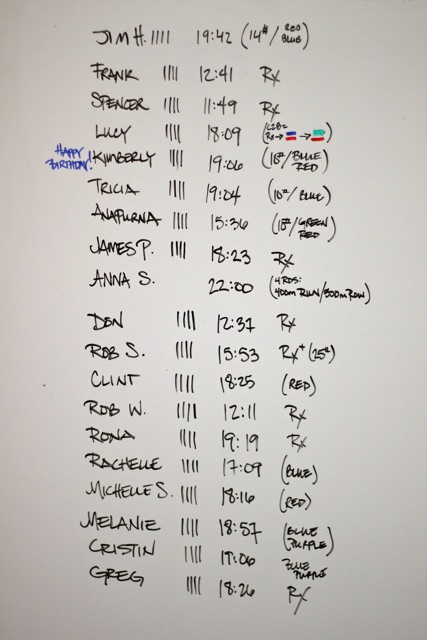 JIM H. |||| 19:42 (14#/RED BLUE)
FRANK |||| 12:41 Rx
SPENCER |||| 11:49 Rx
LUCY |||| 18:09 Rx→ →
HAPPY BIRTHDAY! KIMBERLY |||| 19:06 (10#/BLUE RED)
TRICIA |||| 19:04 (10#/BLUE)
ANAPURNA |||| 15:36 (10#/GREEN RED)
JAMES P. |||| 18:23 Rx
ANNA S. 22:00 (4 RDS: 400m RUN/500m ROW)
DON |||| 12:37 Rx
ROB S. |||| 15:53 Rx+ (25#)
CLINT |||| 18:25 (RED)
ROB W. |||| 12:11 Rx
RONA |||| 19:19 Rx
RACHELLE |||| 17:09 (BLUE)
MICHELLE S. |||| 18:16 (RED)
MELANIE |||| 18:57 (BLUE PURPLE)
CRISTIN |||| 19:06 BLUE PURPLE
GREG |||| 18:26 Rx